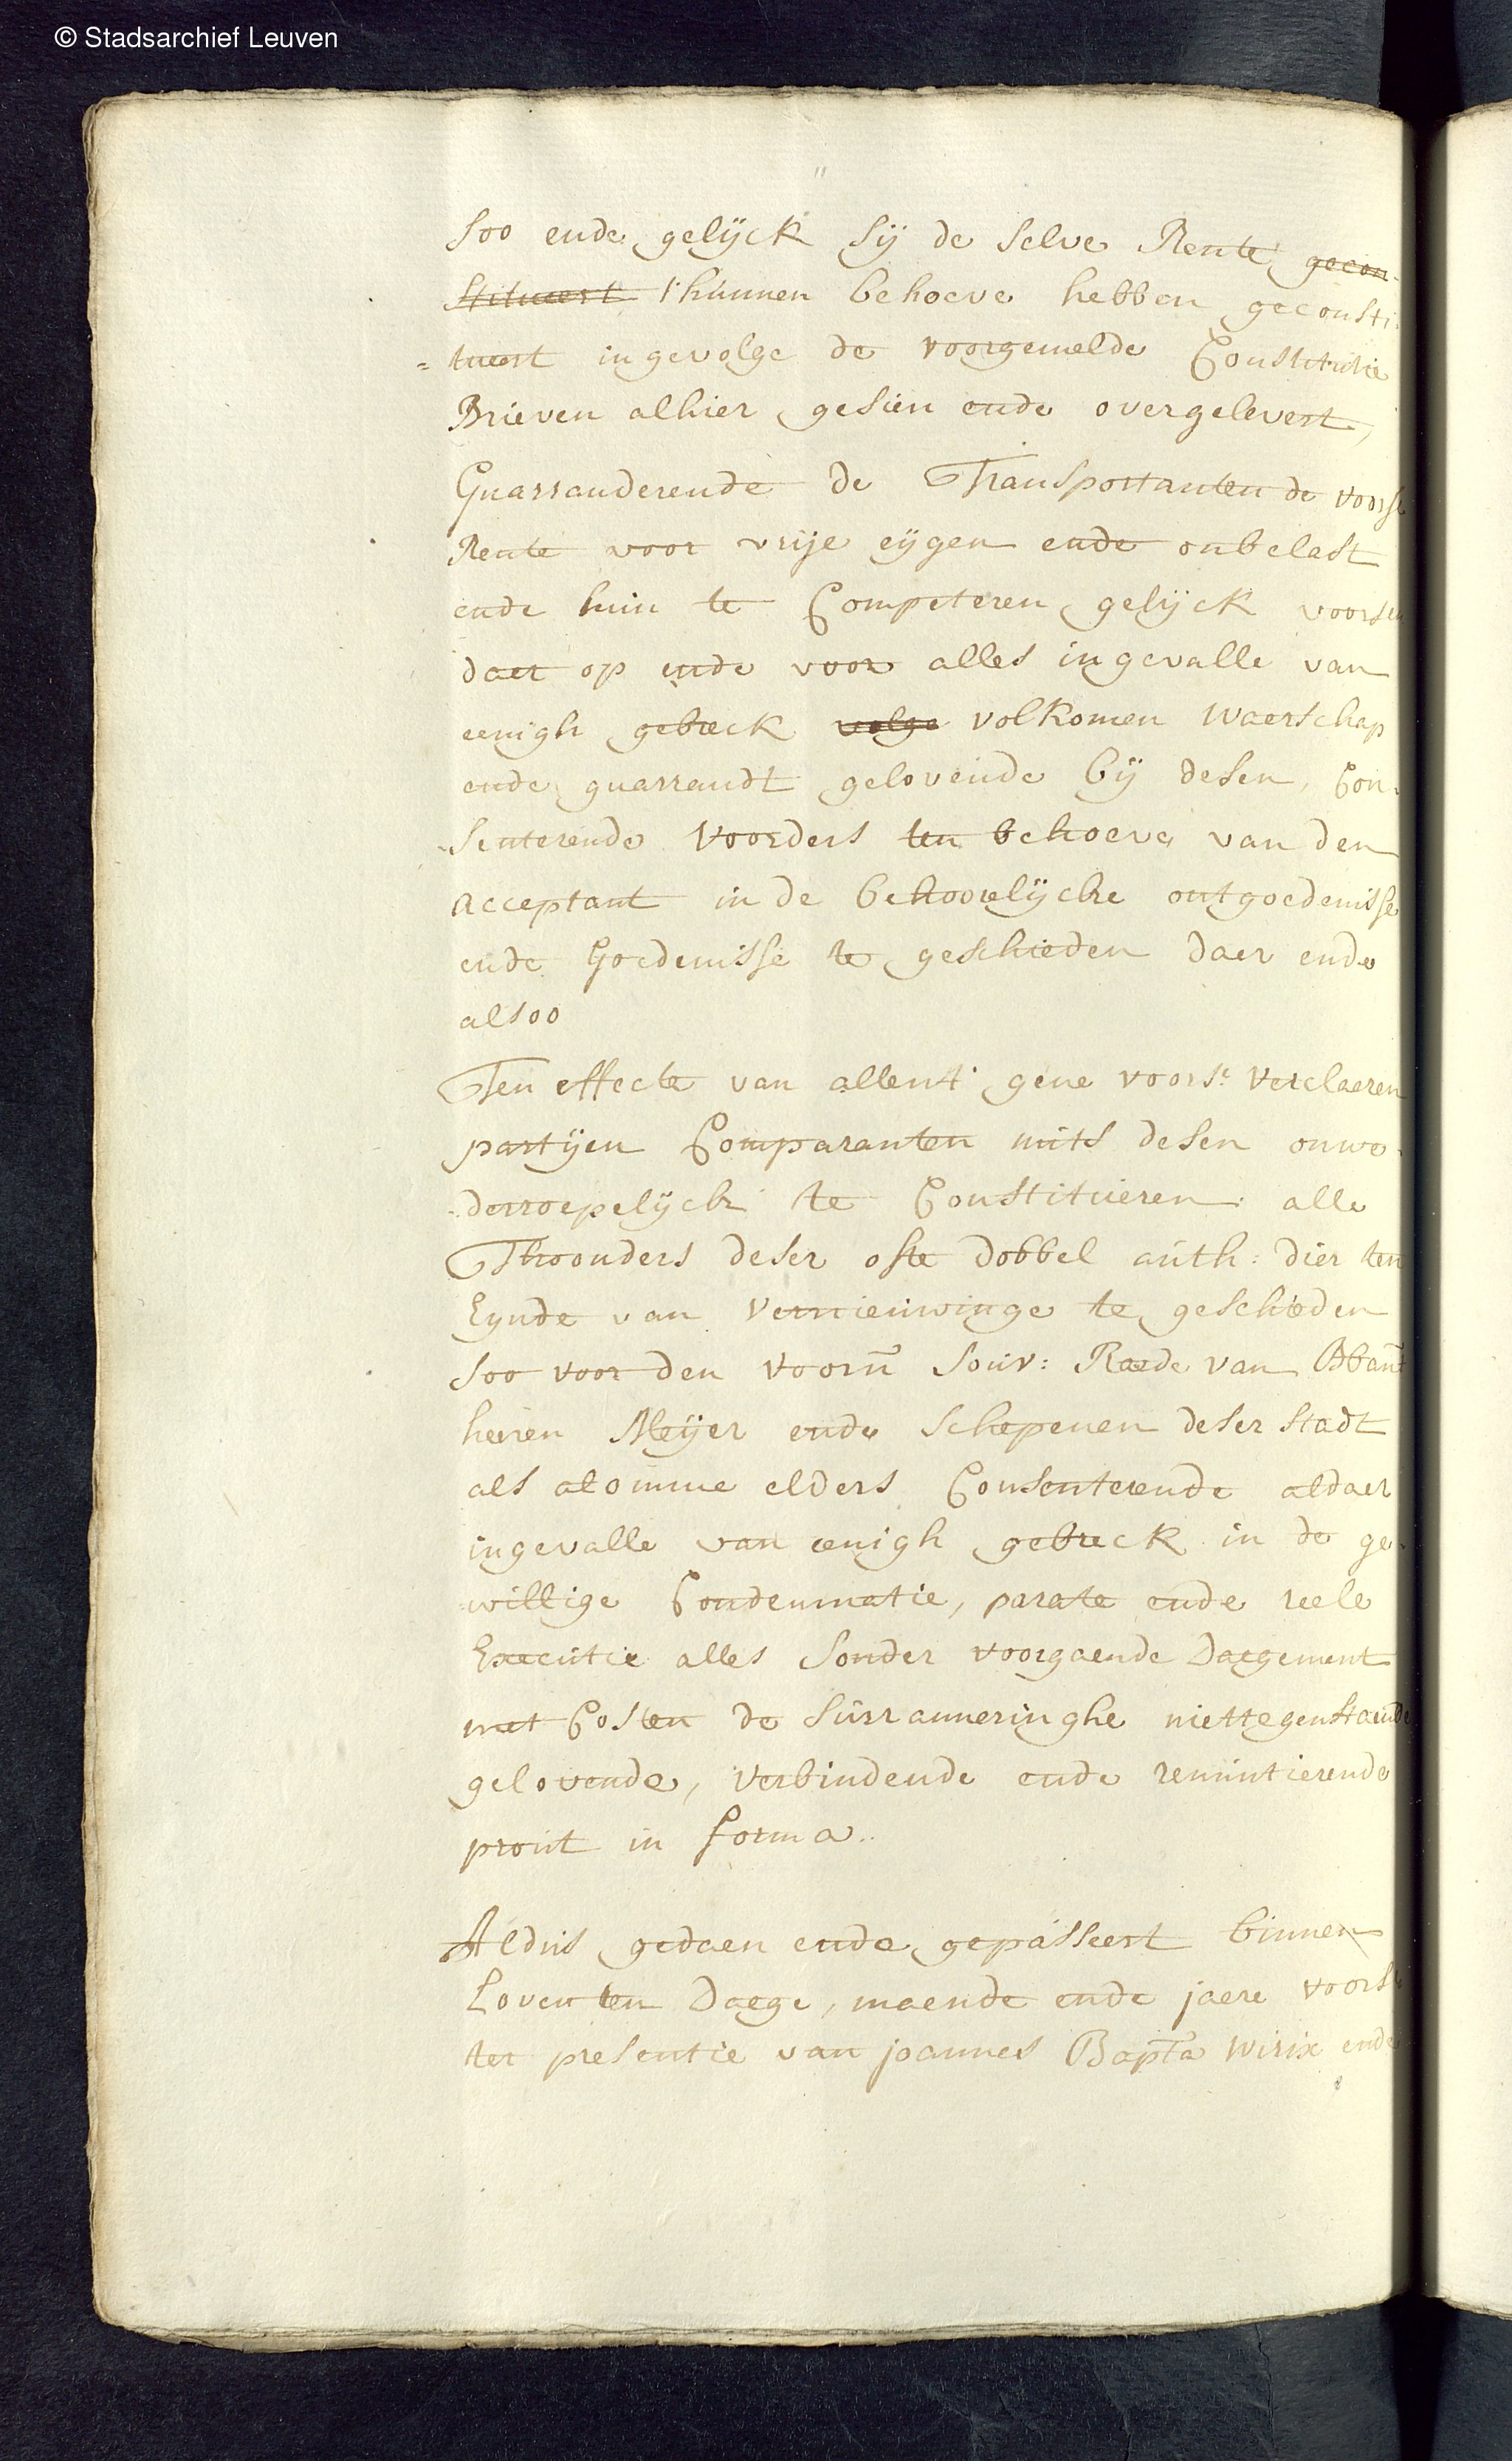 © Stadsarchief Leuven
soo ende gelyck sij de selve Rente gecon-
stitueert t'hunnen behoeve hebben geconsti-
= tueert ingevolge de voorgemelde Constitutie
Brieven alhier gesien ende overgelevert,
Guarranderende de Transportanten de voors
Rente voor vrije eijgen ende onbelast
ende hun te Competeren gelijck voors
daer op ende voor alles ingevalle van
eenigh gebreck volge volkomen waerschap
ende guarrandt gelovende bij desen, Con-
senterende voorders ten behoeve van den
acceptant in de behoorelijcke ontgoedenisse
ende Goedenisse te geschieden daer ende
alsoo
Ten effecte van allent' gene voors: verclaeren
partijen Comparanten mits desen onwe-
-derroepelijck te Constitueren alle
Thoonders deser ofte dobbel auth: dier ten
Eynde van vernieuwinge te geschieden
soo voor den voorn̄ souv: Raede van Bbant
heeren Meijer ende schepenen deser stadt
als alomme elders Consenterende aldaer
ingevalle van eenigh gebreck in de ge-
willige Condemnatie, parate ende reele
Executie alles sonder voorgaende daegement
met Costen de surranneringhe niettegenstaende
gelovende, verbindende ende renuntierende
prout in forma..
Aldus gedaen ende gepasseert binnen
Loven ten daege, maende ende jaere voors
ter presentie van joannes Bapta wirix ende